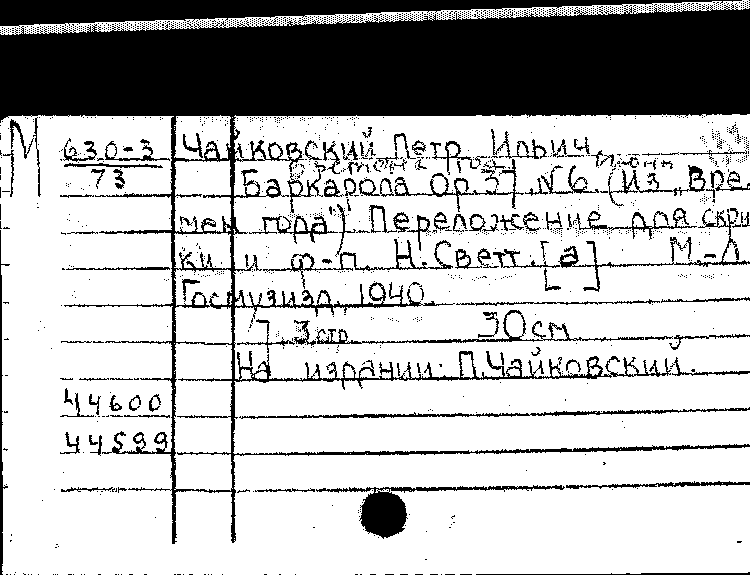 М
630-3 Чайковский Петр Ильич.
73
Времена года Июнь
Баркарола Ор.37, №6. (Из „Вре-
мен года"). Переложение для скрип
ки и ф-п. Н. Светт.[а]. М.-Л
Госмузизд., 1940.
7 3 стр. 30 см
На издании: П.Чайковский.
44600
44599